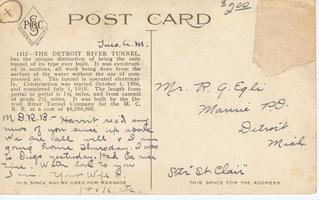 $2.00
POST CARD
Tues. A.M.
1312—THE DETROIT RIVER TUNNEL,
has the unique distinction of being the only
tunnel of its type ever built. It was construct-
ed in sections, all work being done from the
surface of the water without the use of com-
pressed air. The tunnel is operated electrical-
ly. Construction was started October 1, 1906,
and completed July 1, 1910. The length from
portal to portal is 1⅗ miles, and from summit
of grade 2⅗ miles. It was built by the De-
troit River Tunnel Company for the M. C.
R. R. at a cost of $8,500,000.
M. D. R. B - Haven't rec'd any
news of you since up above.
We are all well & I am
going home Thursday. I was
to Dugo yesterday. Had a nice
time. With love to you
I am. Your Wife
THIS SPACE MAY BE USED FOR MESSAGE
Mr. R. G. Egli
Marine P.O.
Detroit,
Mich.
Str "St Clair"
THIS SPACE FOR THE ADDRESS